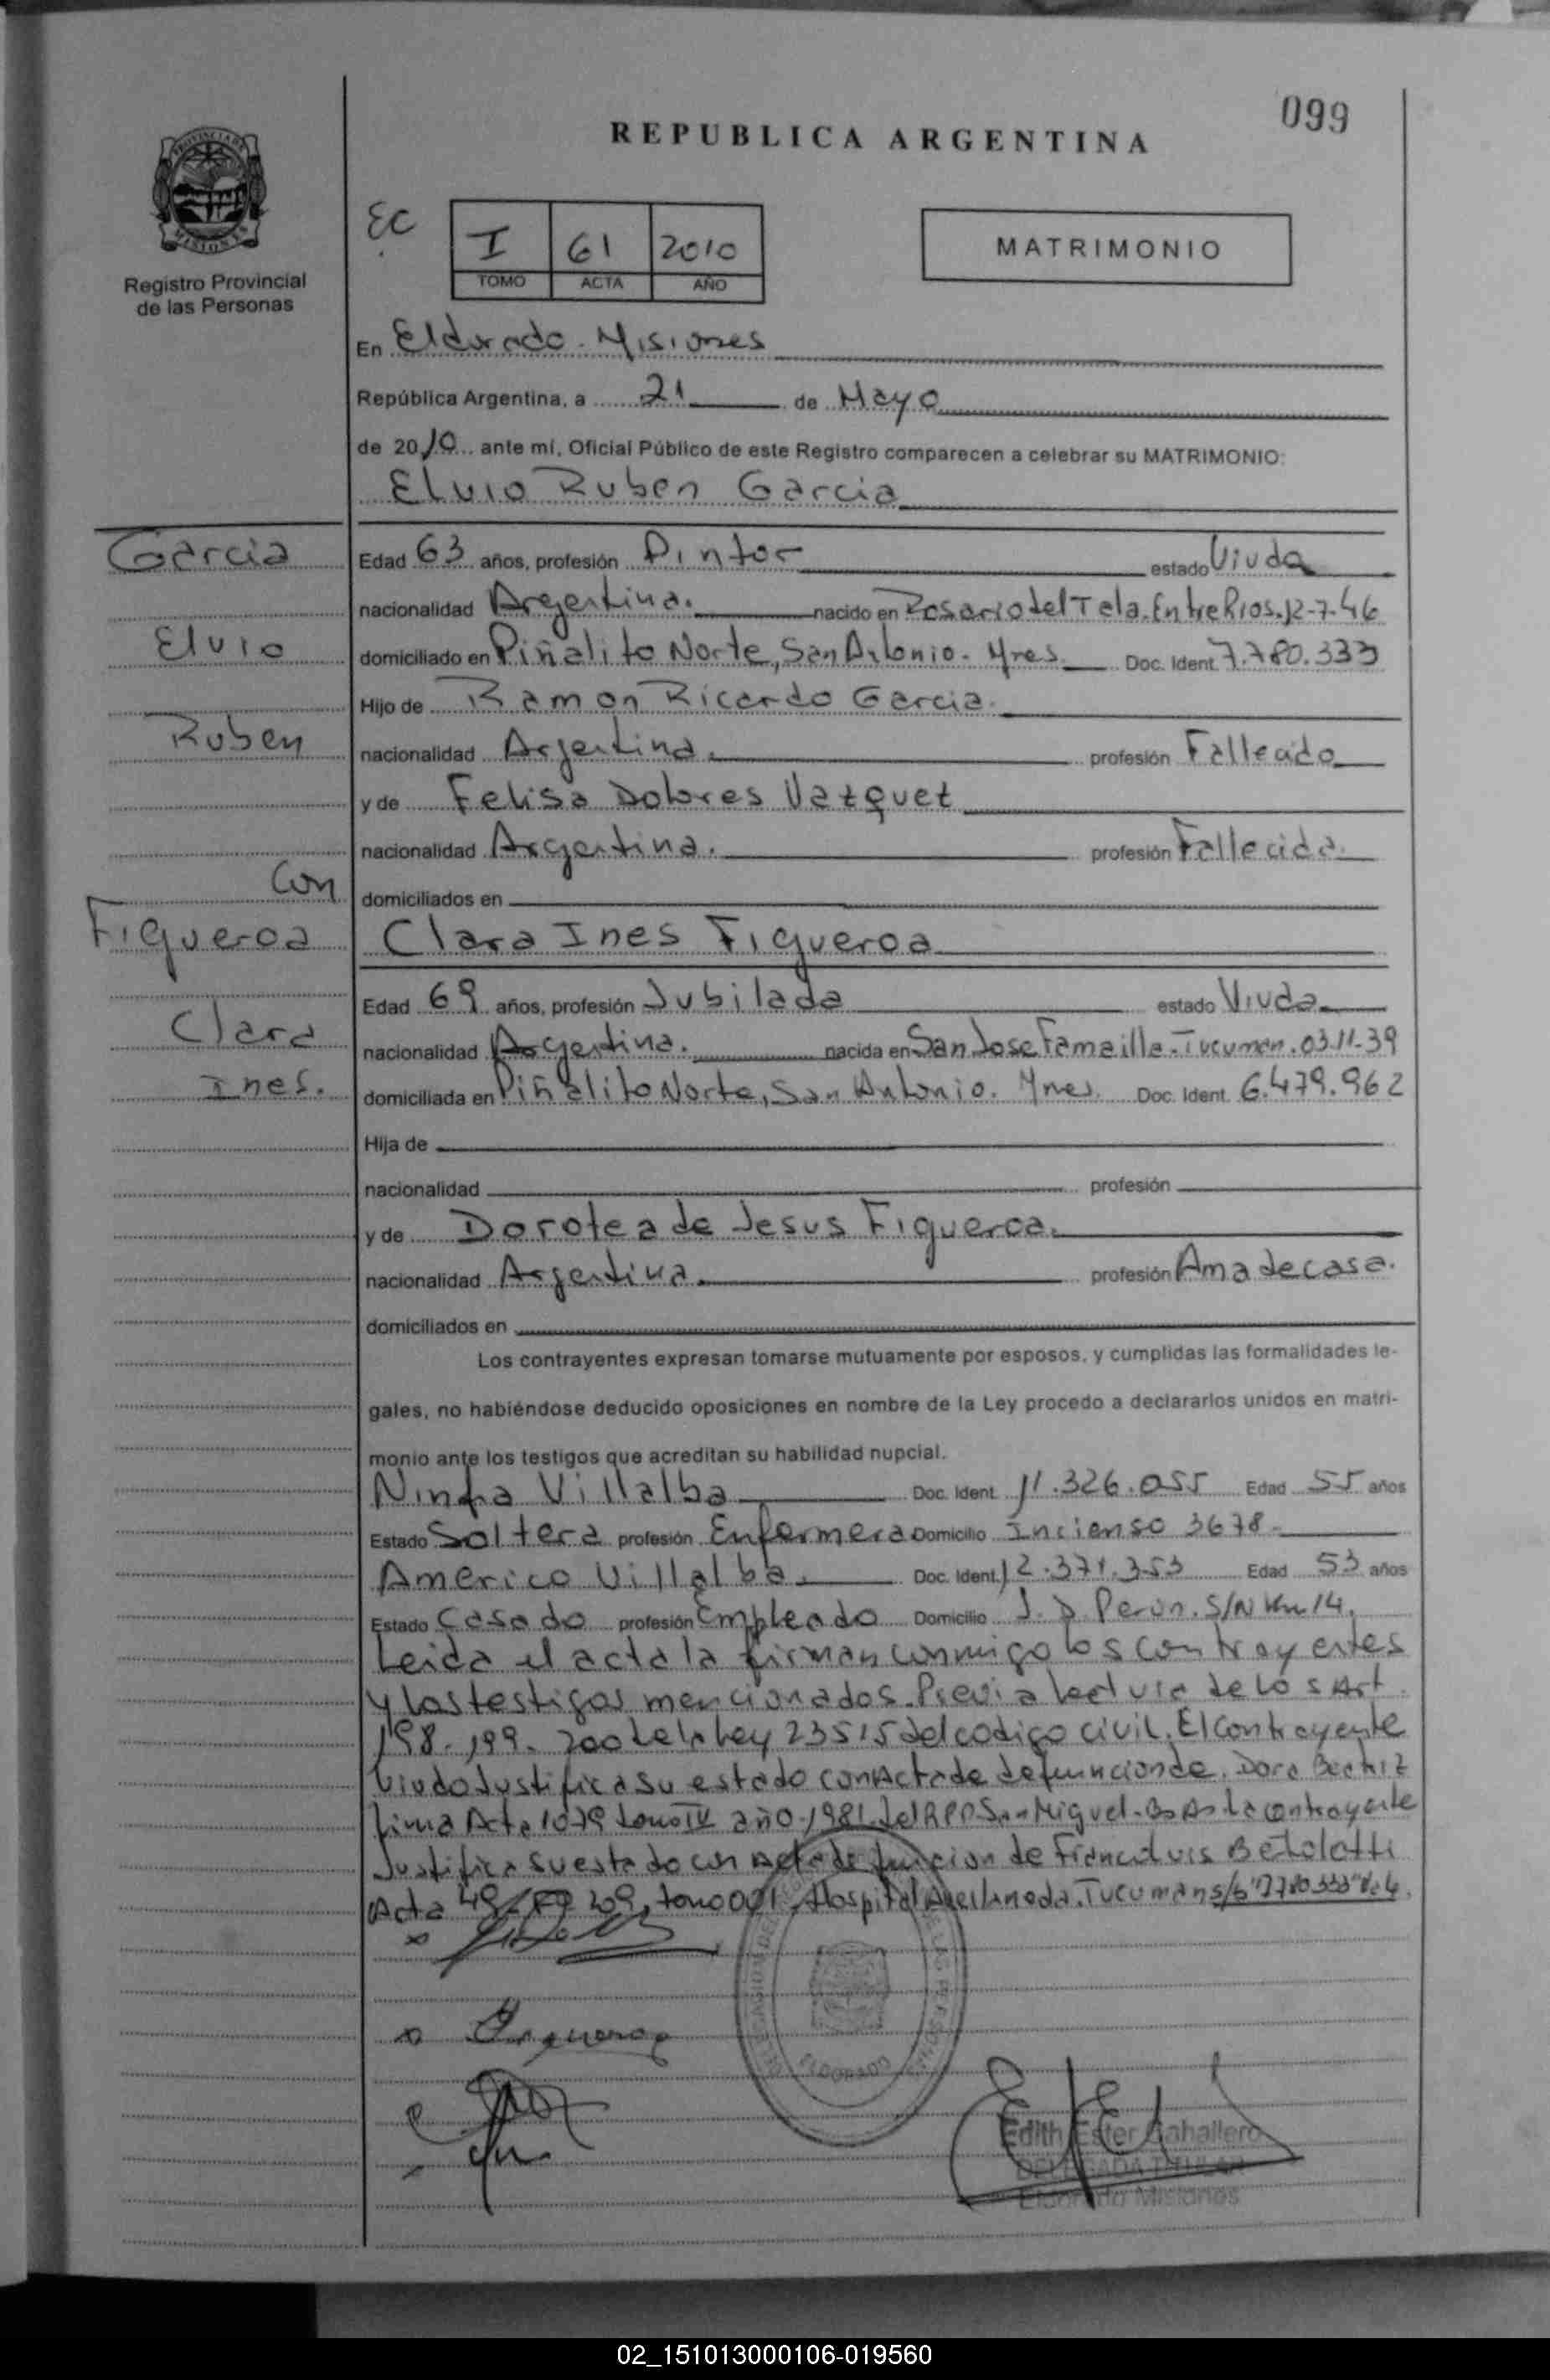 099
REPUBLICA ARGENTINA
EC
I 61 2010
TOMO ACTA AÑO
MATRIMONIO
Registro Provincial
de las Personas
En Eldorado - Misiones
República Argentina, a 21 de Mayo
de 2010 ante mí, Oficial Público de este Registro comparecen a celebrar su MATRIMONIO:
Elvio Ruben Garcia
Garcia
Edad 63 años, profesión Pintor estado Viudo
nacionalidad Argentina. nacido en Rosario del Tala. Entre Rios. 12-7-46
Elvio
domiciliado en Piñalito Norte, San Antonio. Mnes. Doc. Ident. 7.780.333
Hijo de Ramon Ricardo Garcia.
Ruben
nacionalidad Argentina. profesión Fallecido
y de Felisa Dolores Vazquez
nacionalidad Argentina. profesión Fallecida.
Con
domiciliados en
Figueroa
Clara Ines Figueroa
Edad 69 años, profesión Jubilada estado Viuda
Clara
nacionalidad Argentina. nacida en San Jose Famailla. Tucuman. 03-11-39
Ines.
domiciliada en Piñalito Norte, San Antonio. Mnes. Doc. Ident. 6.479.962
Hija de
nacionalidad profesión
y de Dorotea de Jesus Figueroa.
nacionalidad Argentina. profesión Ama de casa.
domiciliados en
Los contrayentes expresan tomarse mutuamente por esposos, y cumplidas las formalidades le-
gales, no habiéndose deducido oposiciones en nombre de la Ley procedo a declararlos unidos en matri-
monio ante los testigos que acreditan su habilidad nupcial.
Ninfa Villalba Doc. Ident. 11.326.055 Edad 55 años
Estado Soltera profesión Enfermera Domicilio Incienso 3678-
Americo Villalba. Doc. Ident. 12.371.353 Edad 53 años
Estado Casado profesión Empleado Domicilio J. D Peron. S/N Km 14.
Leida el acta la firman conmigo los contrayentes
y los testigos mencionados. Previa lectura de los Art.
198. 199. 200 de la Ley 23515 del codigo civil. El contrayente
viudo Justifica su estado con Acta de defuncion de. Dora Beatriz
Lima Acta 1079 tomo IV año 1981 del RPP San Miguel. Bs As. La contrayente
Justifica su estado con Acta de funcion de Betolotti
Acta 49 209, tomo 001, Hospital Avellaneda. Tucuman s/b "7780.333" Vale.
Figueroa
ELDORADO
Edith Ester Caballero
DELEGADA TITULAR
Eldorado Misiones
02_151013000106-019560